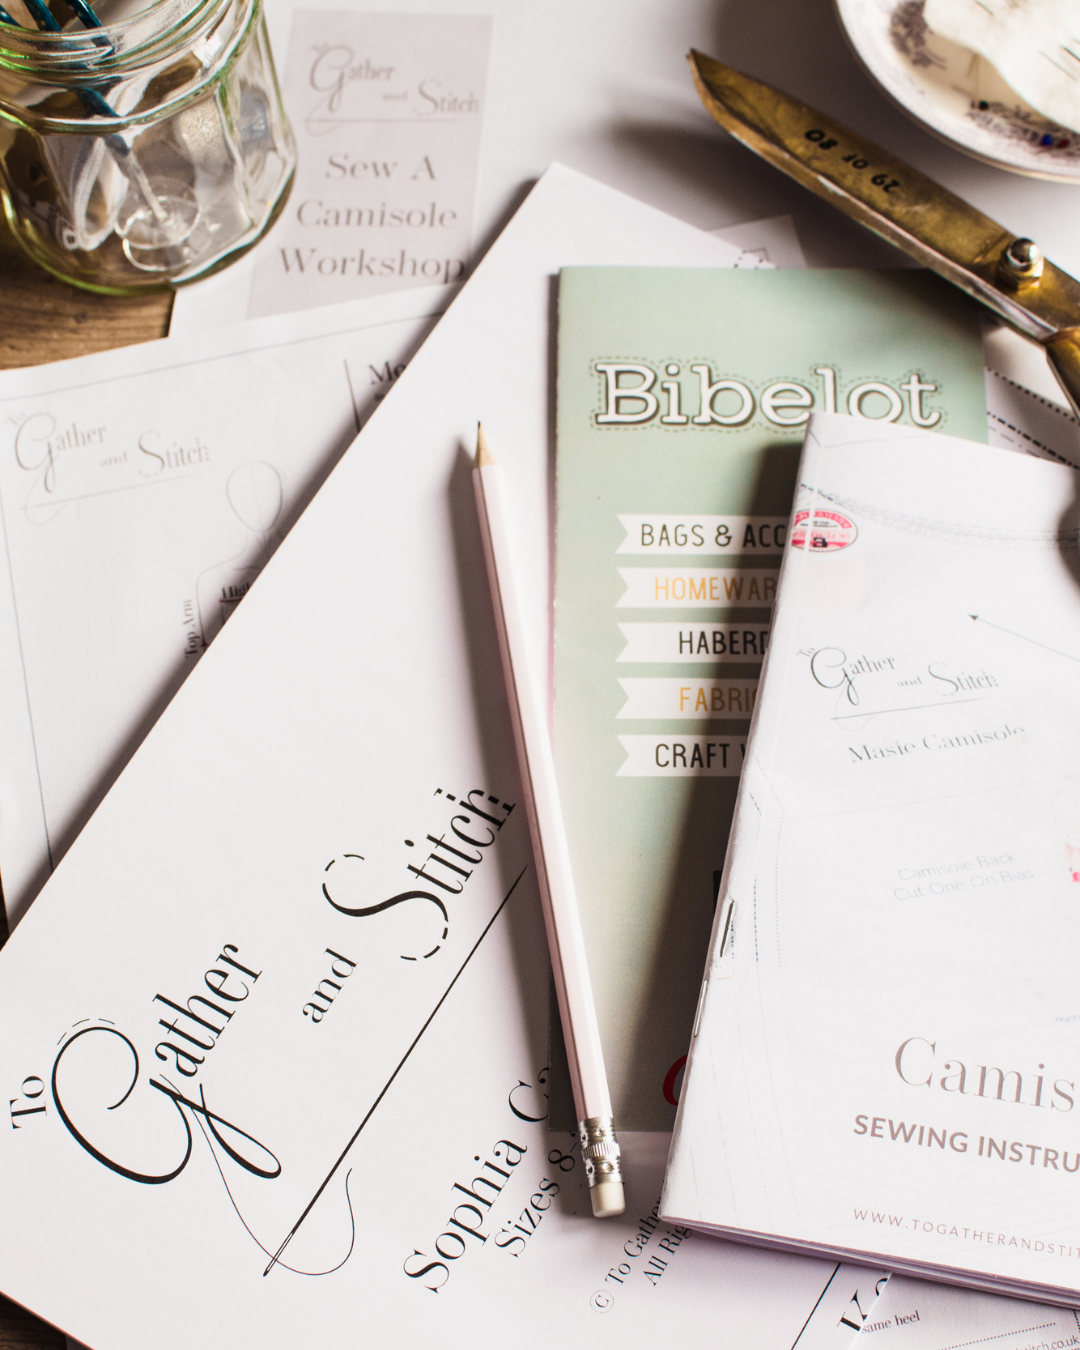 To
Gather
and Stitch
Sew A
Camisole
Workshop
29 or 80
To
Gather
and Stitch
Top Arm
Bibelot
BAGS & ACC
HOMEWAR
HABERD
FABRIC
CRAFT
To
Gather
and Stitch
Masie Camisole
Camisole Back
Cut One On Bias
Camis
SEWING INSTRU
WWW.TOGATHERANDSTIT
To
Gather
and
Stitch
Sophia Ca
Sizes 8-
© To Gather
All Rig
same heel
stitch.co.uk